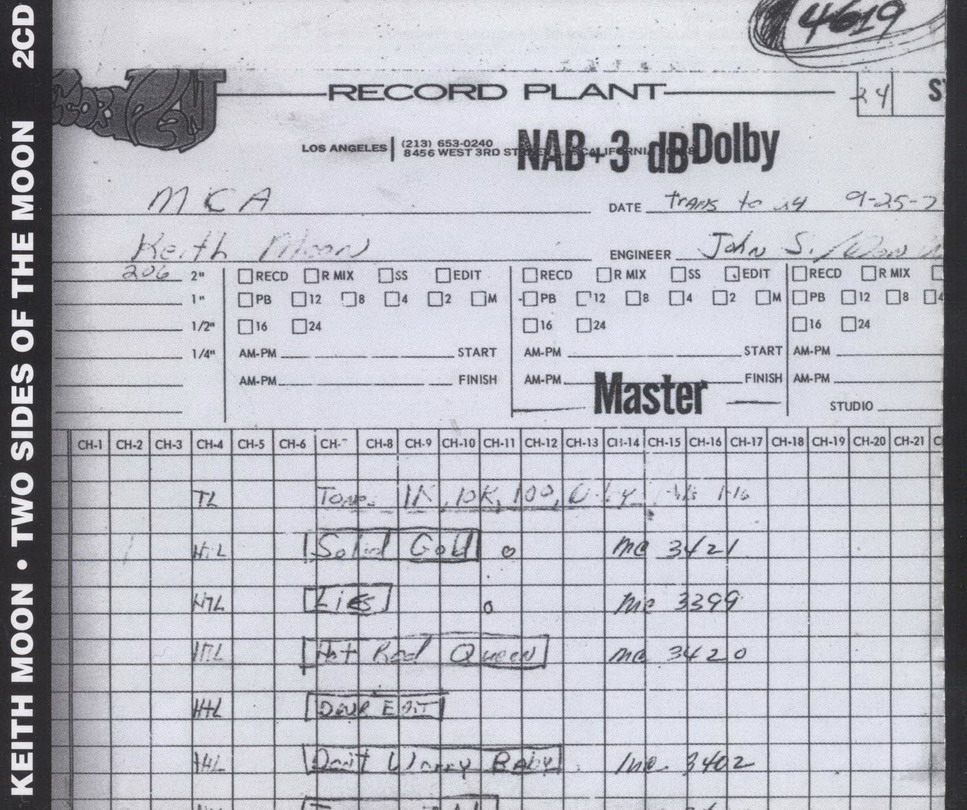 KEITH MOON • TWO SIDES OF THE MOON 2CD
4619
RECORD PLANT
24
LOS ANGELES (213) 653-0240
8456 WEST 3RD
NAB+3 dB Dolby
MCA
DATE trans to 24 9-25-7
Keith Moon
ENGINEER John S. /
206 2" RECD R MIX SS EDIT RECD R MIX SS EDIT RECD R MIX
1" PB 12 8 4 2 M PB 12 8 4 2 M PB 12 8 4
16 24 16 24 16 24
1/2"
1/4" AM-PM START AM-PM START AM-PM
AM-PM FINISH AM-PM FINISH AM-PM
Master
STUDIO
CH-1 CH-2 CH-3 CH-4 CH-5 CH-6 CH-7 CH-8 CH-9 CH-10 CH-11 CH-12 CH-13 CH-14 CH-15 CH-16 CH-17 CH-18 CH-19 CH-20 CH-21
TL Tones 1K, 10K, 100,
Solid Gold o mc 3421
Lies o mc 3399
Hot Rod Queen mc 3420
Don't Worry Baby mc 3402